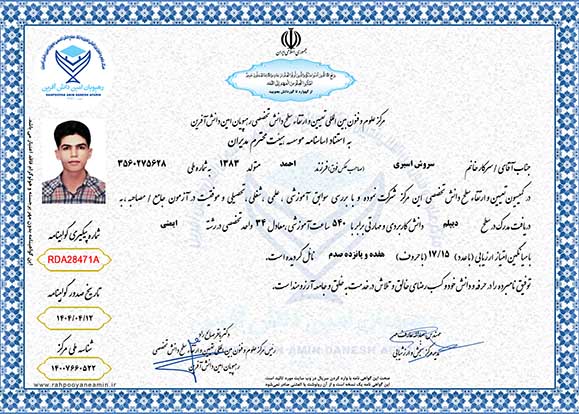 رهپویان امین دانش آفرین
RAHPOOYAN AMIN DANESH AFARIN
جمهوری اسلامی ایران
ز گهواره تا گور دانش بجویید
مرکز علوم و فنون بین المللی تعیین و ارتقاء سطح دانش تخصصی رهپویان امین دانش آفرین
به استناد اساسنامه موسسه، هیئت محترم مدیران
جناب آقای / سرکار خانم سروش اسیری (صاحب عکس فوق) فرزند احمد متولد ۱۳۸۳ به شماره ملی ۳۵۶۰۲۷۵۶۲۸
در کمیسیون تعیین و ارتقاء سطح دانش تخصصی این مرکز شرکت نموده و با بررسی سوابق آموزشی ، علمی ، شغلی ، تحصیلی و موفقیت در آزمون جامع / مصاحبه ، به
دریافت مدرک در سطح دیپلم دانش کاربردی و مهارتی برابر با ۵۴۰ ساعت آموزشی ، معادل ۳۴ واحد تخصصی در رشته ایمنی
با میانگین امتیاز ارزیابی (با عدد) ۱۷/۱۵ (با حروف) هفده و پانزده صدم نائل گردیده است.
توفیق نامبرده را در حرفه و دانش خود و کسب رضای خالق و تلاش در خدمت به خلق و جامعه آرزومند است.
شماره پیگیری گواهینامه
RDA28471A
تاریخ صدور گواهینامه
۱۴۰۴/۰۴/۱۲
شناسه ملی مرکز
۱۴۰۰۷۶۶۰۵۲۲
www.rahpooyaneamin.ir
رئیس مرکز علوم و فنون بین المللی تعیین و ارتقاء سطح دانش تخصصی
رهپویان امین دانش آفرین
مدیر مرکز سنجش و ارزیابی
AMIN DANESH AFARIN